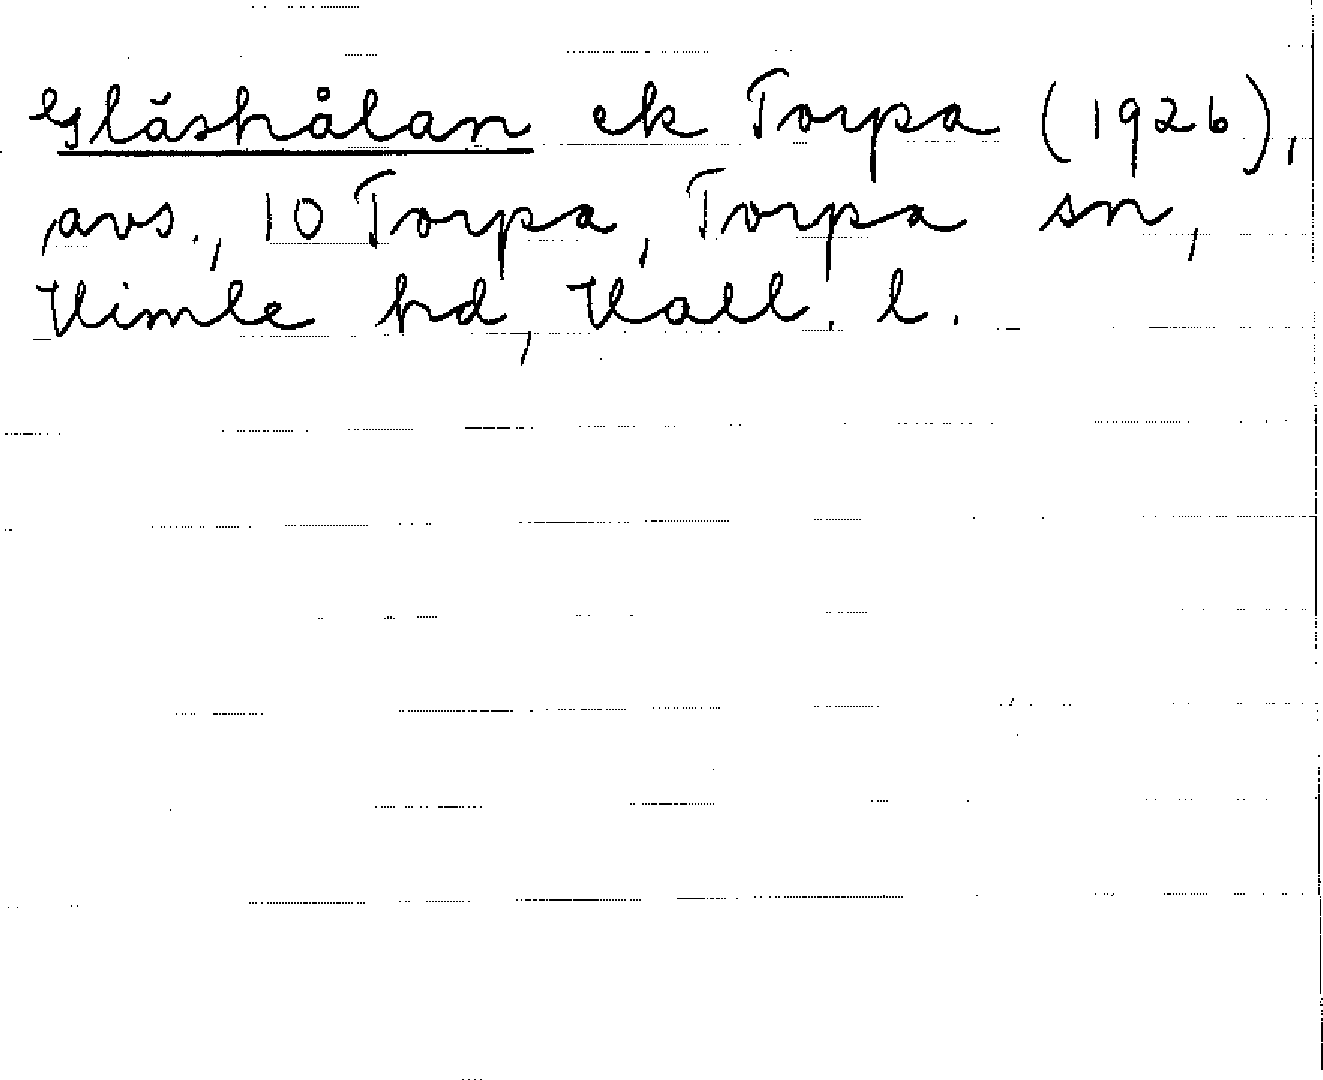 Gläshålan ek Torpa (1926),
avs., 10 Torpa, Torpa sn,
Himle hd, Hall. l.